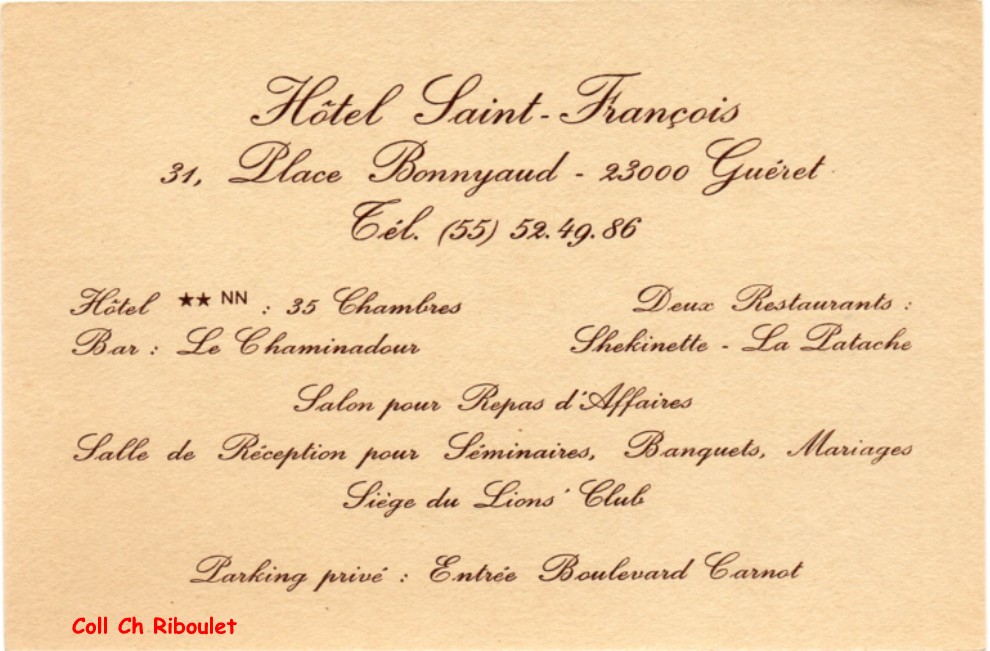 Hôtel Saint-François
31, Place Bonnyaud - 23000 Guéret
Tél. (55) 52.49.86
Hôtel ★★ NN : 35 Chambres
Bar : Le Chaminadour
Deux Restaurants :
Shekinette - La Patache
Salon pour Repas d'Affaires
Salle de Réception pour Séminaires, Banquets, Mariages
Siège du Lions' Club
Parking privé : Entrée Boulevard Carnot
Coll Ch Riboulet